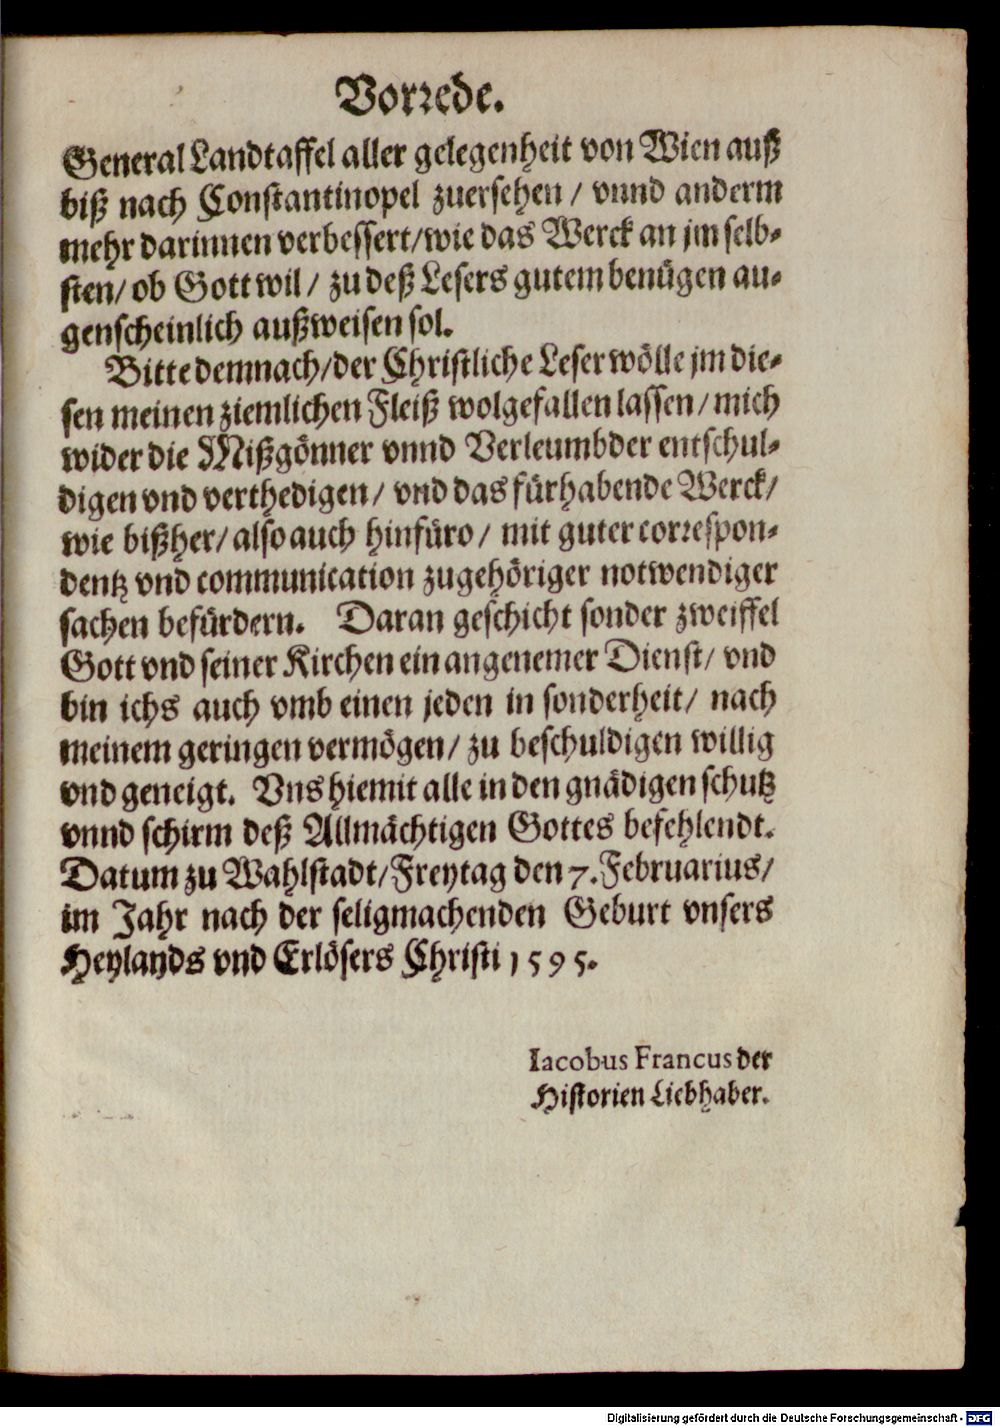 Vorrede.
General Landtaffel aller gelegenheit von Wien auß
biß nach Constantinopel zuersehen / vnnd anderm
mehr darinnen verbessert/wie das Werck an jm selb-
sten/ ob Gott wil / zu deß Lesers gutem benügen au-
genscheinlich außweisen sol.
Bitte demnach/der Christliche Leser wölle jm die-
sen meinen ziemlichen Fleiß wolgefallen lassen / mich
wider die Mißgönner vnnd Verleumbder entschul-
digen vnd verthedigen/ vnd das fürhabende Werck/
wie bißher/ also auch hinfüro / mit guter correspon-
dentz vnd communication zugehöriger notwendiger
sachen befürdern. Daran geschicht sonder zweiffel
Gott vnd seiner Kirchen ein angenemer Dienst/ vnd
bin ichs auch vmb einen jeden in sonderheit/ nach
meinem geringen vermögen/ zu beschuldigen willig
vnd geneigt. Vns hiemit alle in den gnädigen schutz
vnnd schirm deß Allmächtigen Gottes befehlendt.
Datum zu Wahlstadt/Freytag den 7. Februarius/
im Jahr nach der seligmachenden Geburt vnsers
Heylands vnd Erlösers Christi 1595.
Iacobus Francus der
Historien Liebhaber.
Digitalisierung gefördert durch die Deutsche Forschungsgemeinschaft - DFG